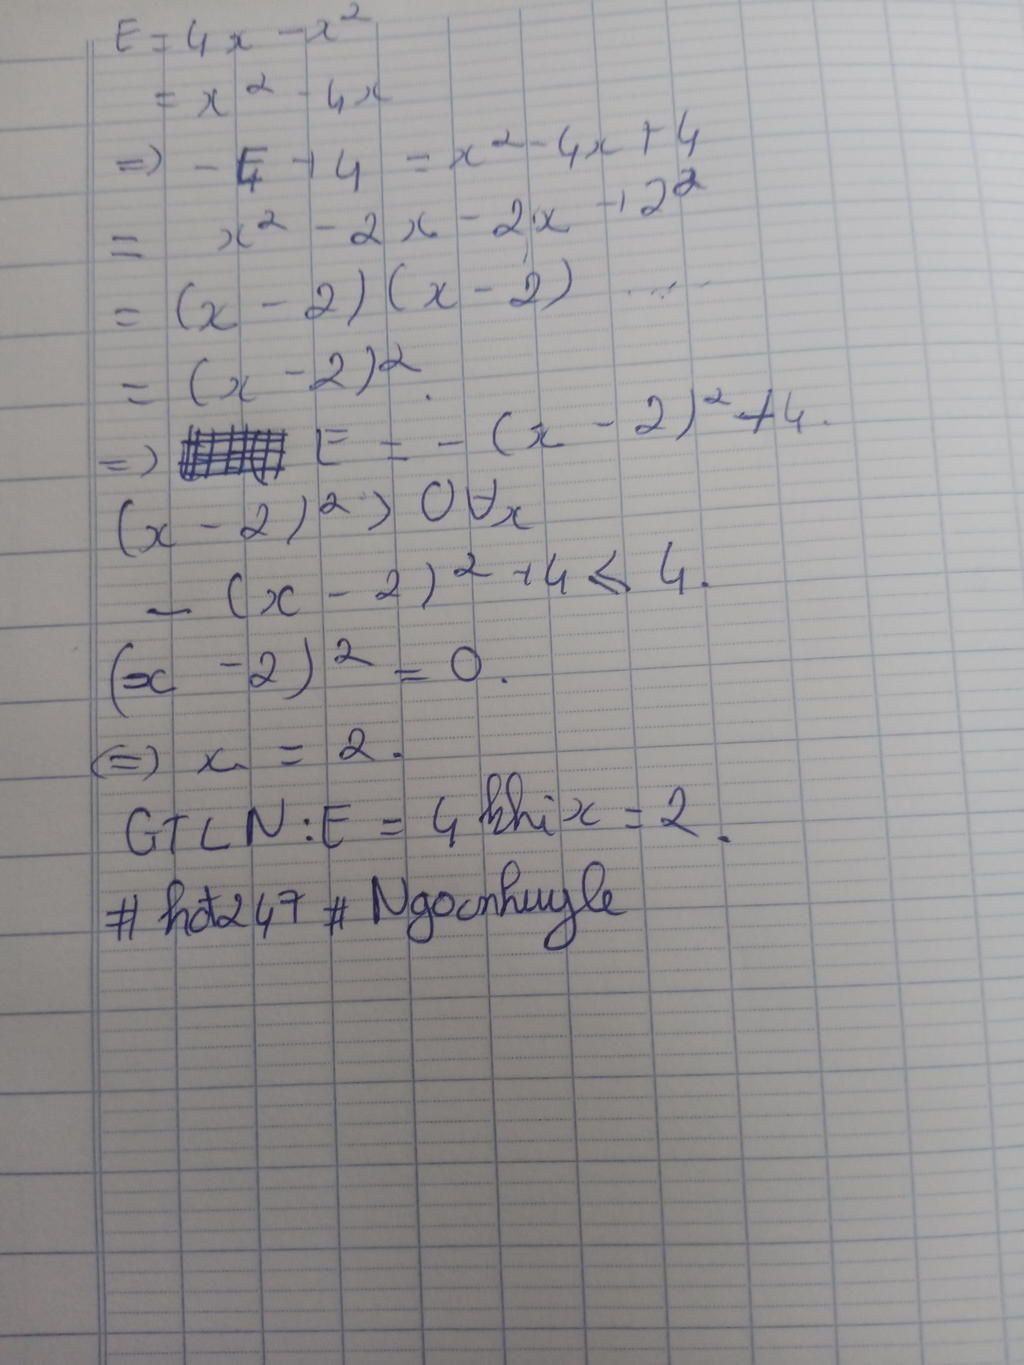 E = 4x - x²
= x² - 4x
=> - E + 4 = x² - 4x + 4
= x² - 2x - 2x + 2²
= (x - 2)(x - 2)
= (x - 2)².
=> E = - (x - 2)² + 4.
(x - 2)² > 0 ∀x
- (x - 2)² + 4 ≤ 4.
(x - 2)² = 0.
<=> x = 2.
GTLN: E = 4 khi x = 2.
# hđ247 # Ngocnhuyle